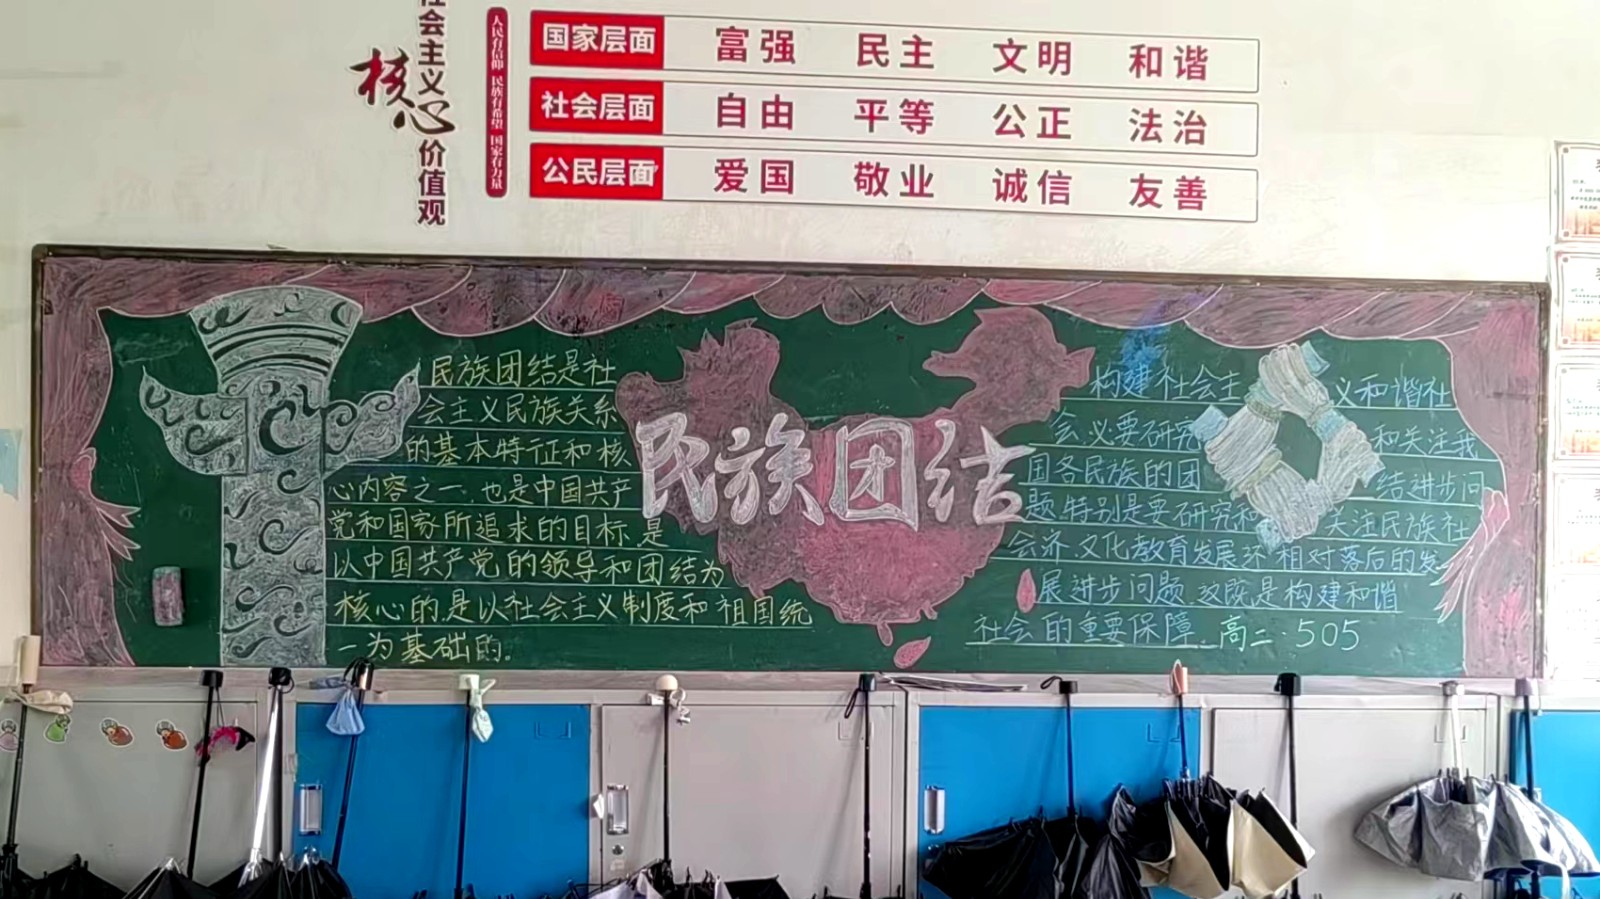 社会主义
核心
价值观
人民有信仰 民族有希望 国家有力量
国家层面 富强 民主 文明 和谐
社会层面 自由 平等 公正 法治
公民层面 爱国 敬业 诚信 友善
民族团结是社
会主义民族关系
的基本特征和核
心内容之一.也是中国共产
党和国家所追求的目标.是
以中国共产党的领导和团结为
核心的.是以社会主义制度和祖国统
一为基础的。
民族团结
构建社会主义和谐社
会.必要研究和关注我
国各民族的团结进步问
题.特别是要研究和关注民族社
会济.文化教育发展还相对落后的发
展进步问题.这既是构建和谐
社会的重要保障.高二·505